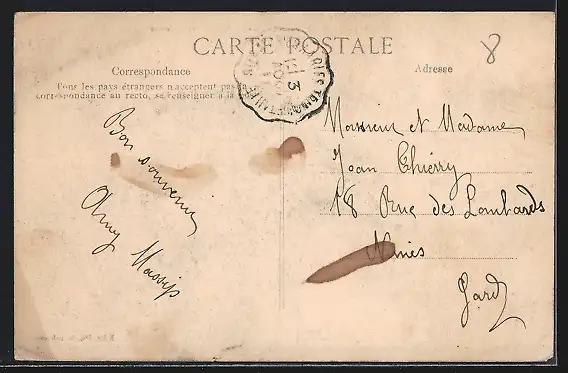 CARTE POSTALE
Correspondance
Tous les pays étrangers n'acceptent pas la
correspondance au recto, se renseigner à la
Bon souvenir
Massip
Adresse
8
Monsieur et Madame
Jean Thierry
18 Rue des Lombards
Nimes
Gard